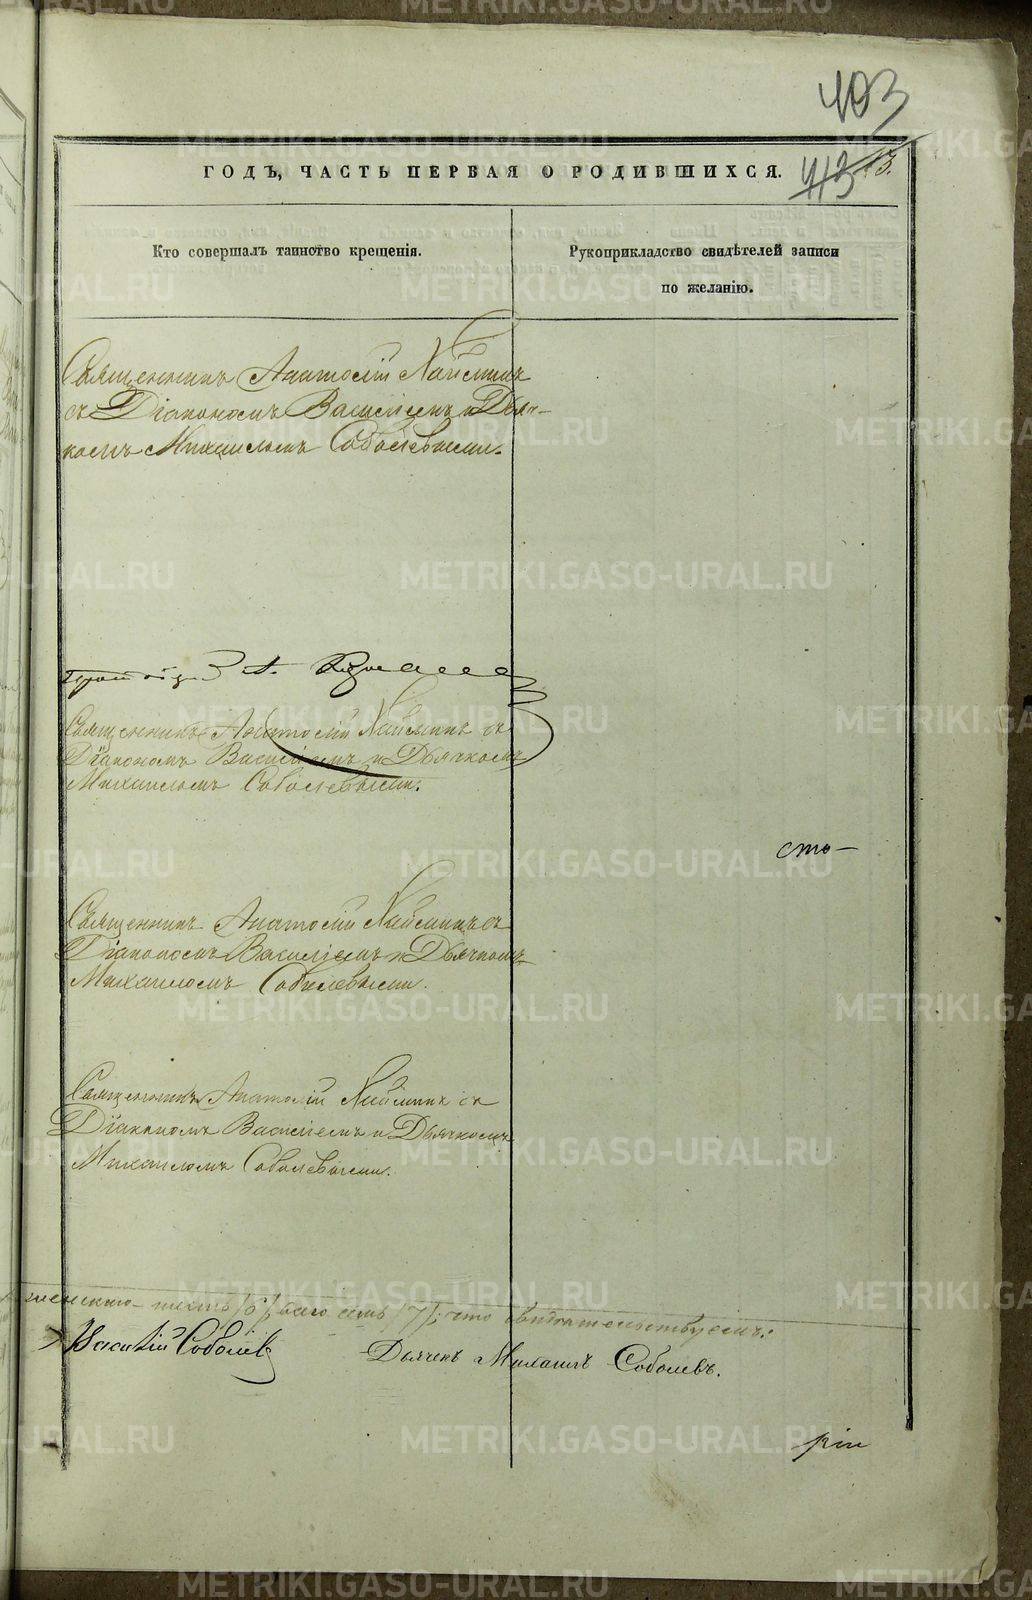 403
413 13.
ГОДЪ, ЧАСТЬ ПЕРВАЯ О РОДИВШИХСЯ.
Кто совершалъ таинство крещенія.
Рукоприкладство свидѣтелей записи
по желанію.
Священникъ Анатолій
съ Діакономъ Василіемъ и Дьяч-
комъ Михаиломъ Соболевыми.
Священникъ Анатолій съ
Діакономъ Василіемъ и Дьячкомъ
Михаиломъ Соболевыми.
сто-
Священникъ Анатолій съ
Діакономъ Василіемъ и Дьячкомъ
Михаиломъ Соболевыми.
Священникъ Анатолій съ
Діакономъ Василіемъ и Дьячкомъ
Михаиломъ Соболевыми.
женскаго- шесть /6/ всего семь /7/; что свидѣтельствуемъ:
Василій Соболевъ
Дьячекъ Михаилъ Соболевъ.
METRIKI.GASO-URAL.RU